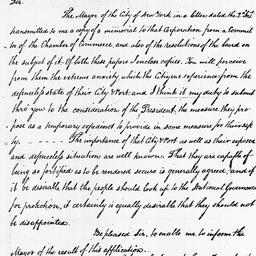 Sir.
The Mayor of the City of New York in a letter dated the 2d
transmitted to me a copy of a memorial to that Corporation from a Commit-
te of the Chamber of Commerce, and also of the resolutions of the board on
the subject of it. Of both these papers I enclose copies. You will perceive
from them the extreme anxiety which the Citizens experience from the
defenceless state of their City & Port: and I think it my duty to submit
thro' you to the consideration of the President, the measure they pro
pose as a temporary expedient to provide in some measure for their safe
ty. The importance of that City & Port as well as their exposed
and defenceless situation are well known. That they are capable of
being so fortified as to be rendered secure is generally agreed, and if
it be desirable that the people should look up to the National Government
for protection, it certainly is equally desirable that they should not
be disappointed.
Be pleased Sir, to enable me to inform the
Mayor of the result of this application.